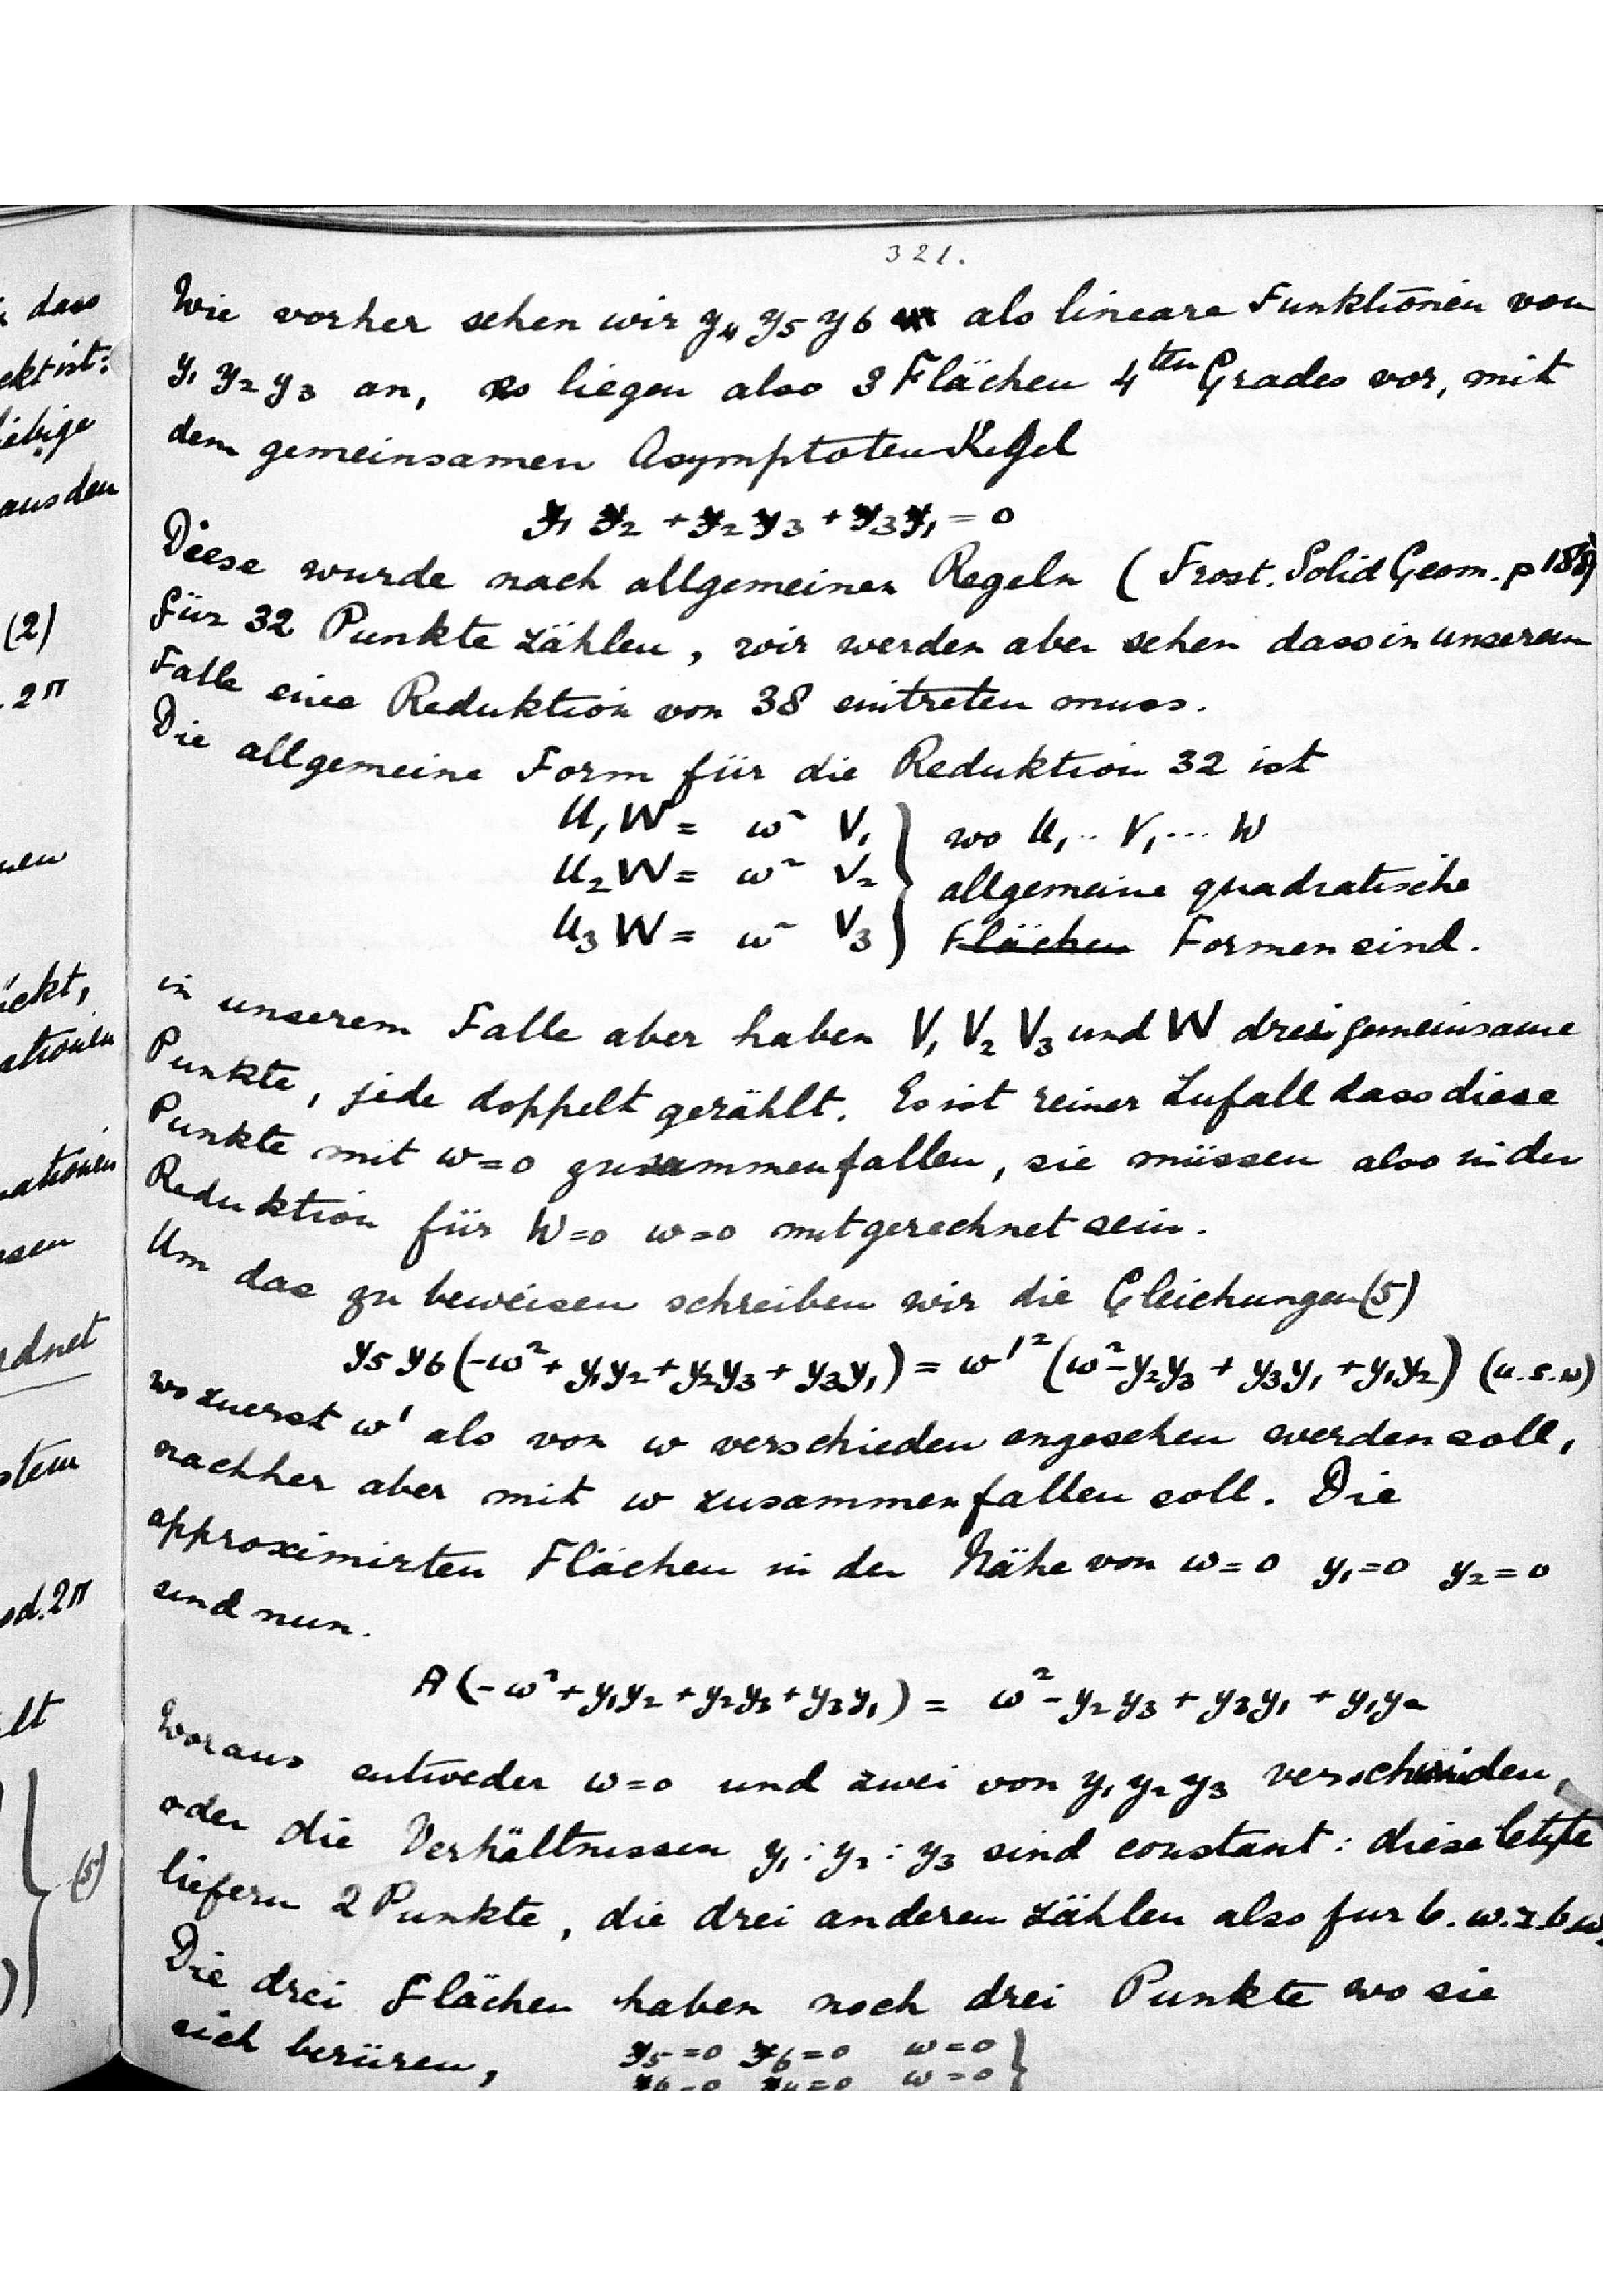 321.
Wie vorher sehen wir y₄ y₅ y₆ als lineare Funktionen von
y₁ y₂ y₃ an, es liegen also 3 Flächen 4ten Grades vor, mit
dem gemeinsamen AsymptotenKegel
y₁ y₂ + y₂ y₃ + y₃ y₁ = 0
Diese wurde nach allgemeinen Regeln ( Frost. Solid Geom. p
für 32 Punkte zählen, wir werden aber sehen dass in unserem
Falle eine Reduktion von 38 eintreten muss.
Die allgemeine Form für die Reduktion 32 ist
U₁W = w² V₁ } wo U₁.. V₁... W
U₂W = w² V₂ } allgemeine quadratische
U₃W = w² V₃ } Flächen Formen sind.
in unserem Falle aber haben V₁ V₂ V₃ und W drei gemeinsame
Punkte, jede doppelt gezählt. Es ist reiner Zufall dass diese
Punkte mit w=0 zusammenfallen, sie müssen also in der
Reduktion für W=0 w=0 mitgerechnet sein.
Um das zu beweisen schreiben wir die Gleichungen (5)
y₅ y₆ (-w² + y₁y₂ + y₂y₃ + y₃y₁) = w'² (w² - y₂y₃ + y₃y₁ + y₁y₂) (u.s.w)
wo zuerst w' als von w verschieden angesehen werden soll,
nachher aber mit w zusammenfallen soll. Die
approximirten Flächen in der Nähe von w=0 y₁=0 y₂=0
sind nun.
A (-w² + y₁y₂ + y₂y₃ + y₃y₁) = w² - y₂y₃ + y₃y₁ + y₁y₂
Woraus entweder w=0 und zwei von y₁ y₂ y₃ verschwinden,
oder die Verhältnissen y₁ : y₂ : y₃ sind constant : diese letzte
liefern 2 Punkte, die drei anderen zählen also fur 6. w.z.b.w.
Die drei Flächen haben noch drei Punkte wo sie
sich berüren, y₅=0 y₆=0 w=0 }
y₆=0 y₄=0 w=0 }
dass
ekt ist:
iebige
aus den
(2)
. 2π
nen
ückt,
ationen
sen
rdnet
stem
od. 2π
lt
(5)